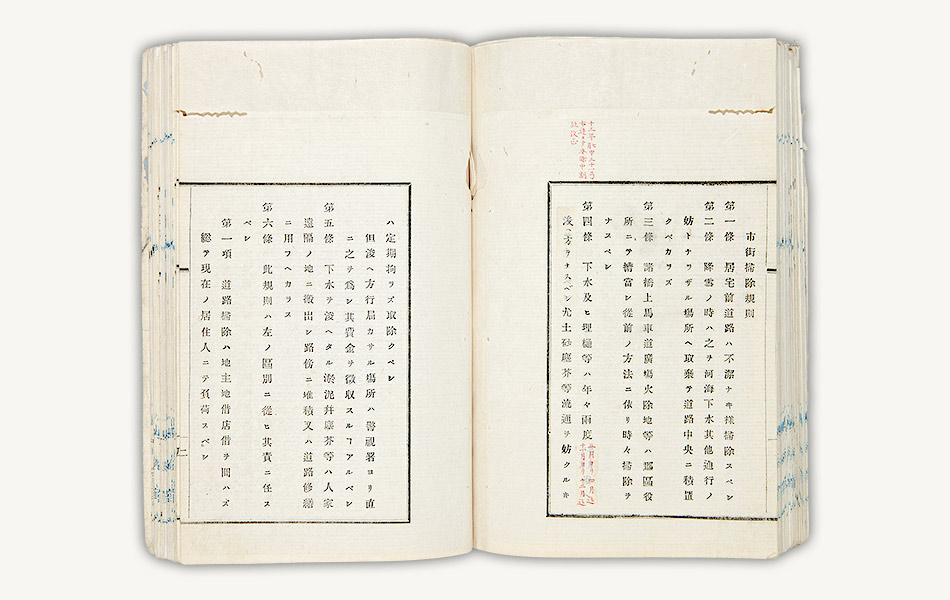 市街掃除規則
第一條 居宅前道路ハ不潔ナキ樣掃除スベシ
第二條 降雪ノ時ハ之ヲ河海下水其他通行ノ
妨トナラザル場所ヘ取棄テ道路中央ニ積置
クベカラズ
第三條 諸橋上馬車道廣場火除地等ハ郡區役
所ニテ擔當シ從前ノ方法ニ依リ時々掃除ヲ
ナスベシ
第四條 下水及ヒ埋樋等ハ年々兩度
浚方ヲナスベシ尤土砂塵芥等流通ヲ妨クルキ
ハ定期拘ラズ取除クベシ
但浚ヘ方行屆カサル場所ハ警視署ヨリ直
ニ之ヲ爲シ其費金ヲ徵収スルヿアルベシ
第五條 下水ヲ浚ヘタル淤泥幷塵芥等ハ人家
遠隔ノ地ニ搬出シ路傍ニ堆積又ハ道路修繕
ニ用フヘカラス
第六條 此規則ハ左ノ區別ニ從ヒ其責ニ任ス
ベシ
第一項 道路掃除ハ地主地借店借ヲ問ハズ
總テ現在ノ居住人ニテ負荷スベシ
二